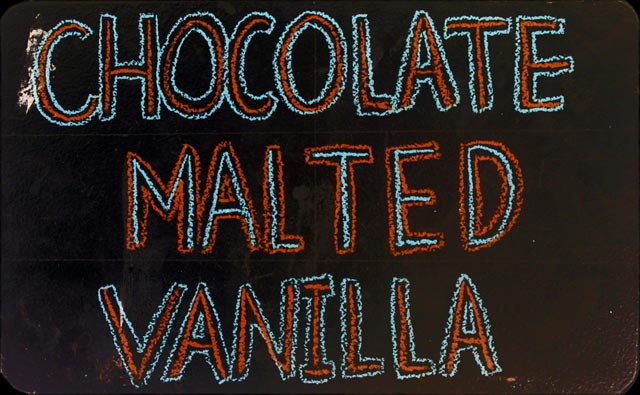 CHOCOLATE
MALTED
VANILLA